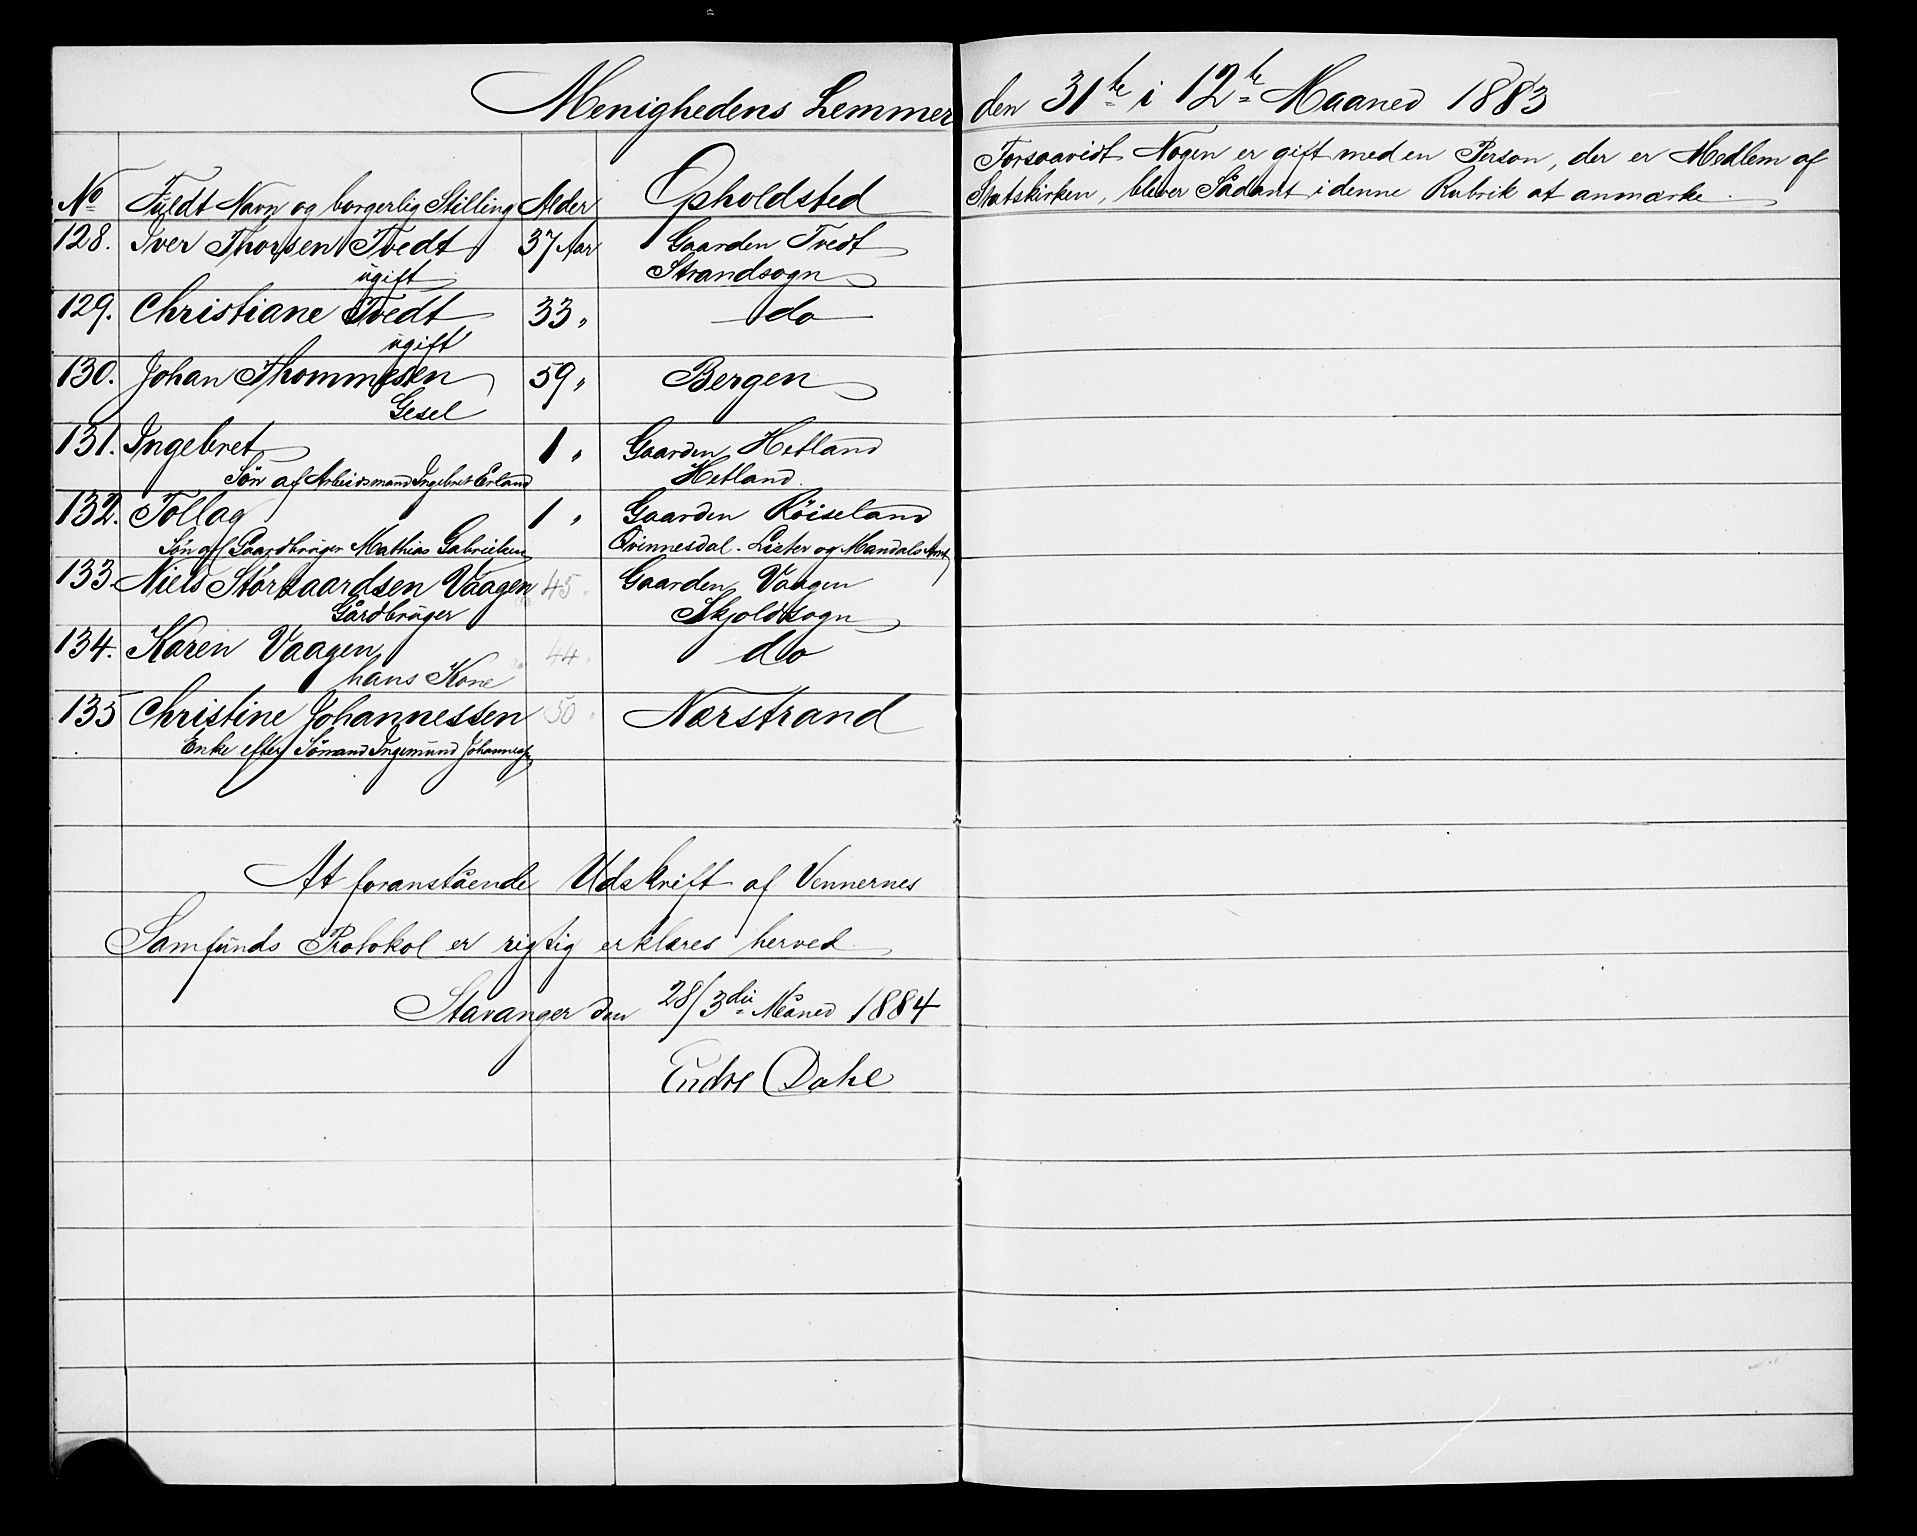 Menighedens Lemmer den 31te i 12te Maaned 1883
Forsaavidt Nogen er gift med en Person, der er Medlem af
Statskirken, bliver Sådant i denne Rubrik at anmærke.
No Fuldt Navn og borgerlig Stilling Alder Opholdsted
128. Iver Thorsen Tvedt 37 Aar Gaarden Tvedt
ugift Strandsogn
129. Christiane Tvedt 33 " do
ugift
130. Johan Thommesen 59 " Bergen
Gesel
131. Ingebret 1 " Gaarden Hetland
Søn af Arbeidsmand Ingebret Erland Hetland.
132. Tollag 1 " Gaarden Röiseland
Søn af Gaardbrüger Mathias Gabrielsen Qvinnesdal. Lister og Mandals Amt
133. Niels Störkaardsen Vaagen 45 " Gaarden Vaagen
Gårdbrüger Skjoldsogn
134. Karen Vaagen 44 " do
hans Kone
135 Christine Johannessen 50 " Nærstrand
Enke efter Sömand Ingemund Johannessen
At foranstående Udskrift af Vennernes
Samfunds Protokol er rigtig erklæres herved
Stavanger den 28/3die Måned 1884
Endre Dahl